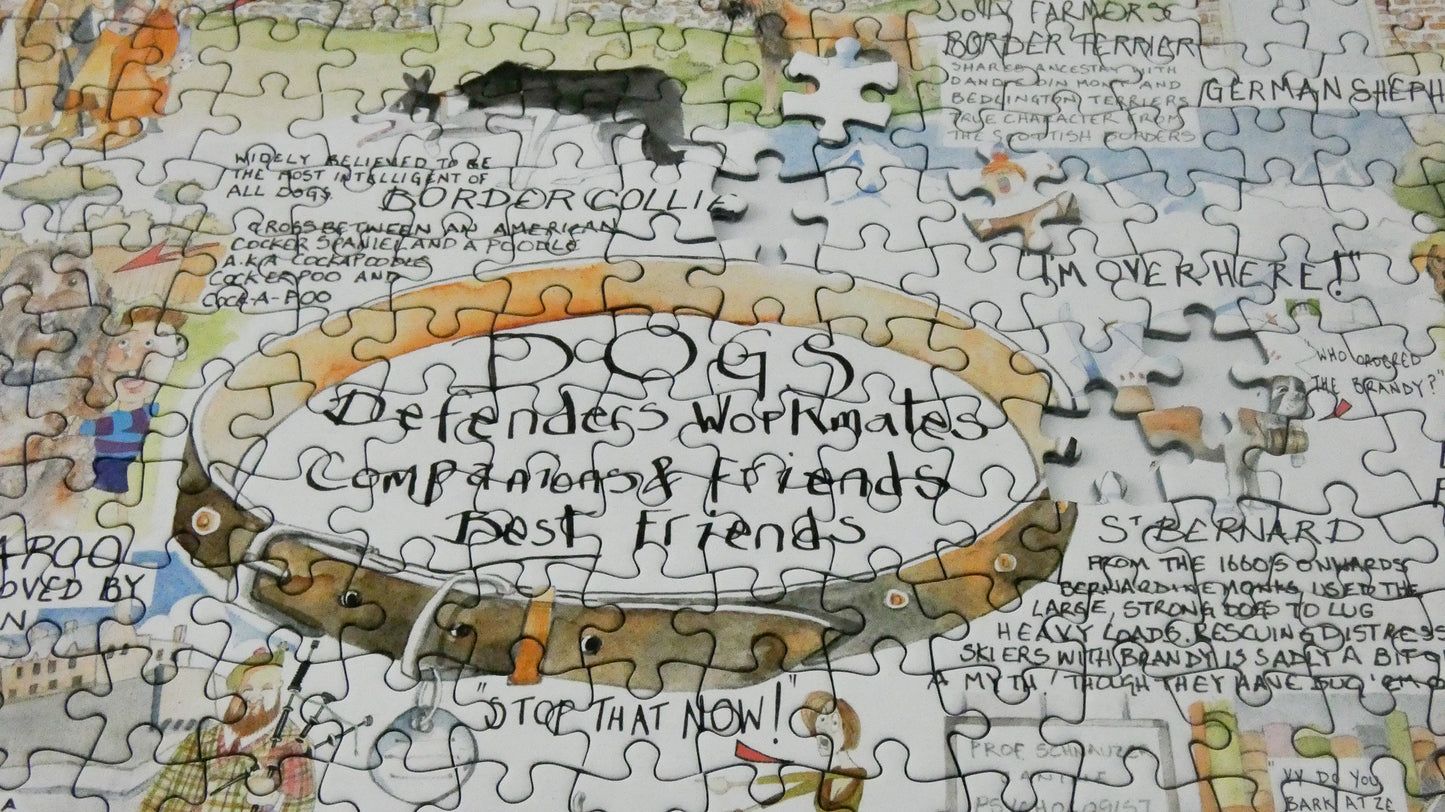 JOLLY FARMERS
BORDER TERRIER
SHARED ANCESTRY WITH
DANDIE DINMONT AND
BEDLINGTON TERRIERS
TRUE CHARACTER FROM
THE SCOTTISH BORDERS
GERMAN SHEPH
WIDELY BELIEVED TO BE
THE MOST INTELLIGENT OF
ALL DOGS.
BORDER COLLIE
CROSS BETWEEN AN AMERICAN
COCKER SPANIEL AND A POODLE
A.K.A COCKAPOODLE
COCKERPOO AND
COCK-A-POO
"I'M OVER HERE!"
"WHO ORDERED
THE BRANDY?"
DOGS
Defenders Workmates
Companions & Friends
Best Friends
APOO
OVED BY
N
ST BERNARD
FROM THE 1660'S ONWARDS
BERNARDINE MONKS USED THE
LARGE, STRONG DOGS TO LUG
HEAVY LOADS. RESCUING DISTRESS
SKIERS WITH BRANDY IS SADLY A BIT O
A MYTH! THOUGH THEY HAVE DUG 'EM O
"STOP THAT NOW!"
PROF. SCHNAUZER
PSYCHOLOGIST
DO YOU
BARK AT THE
A